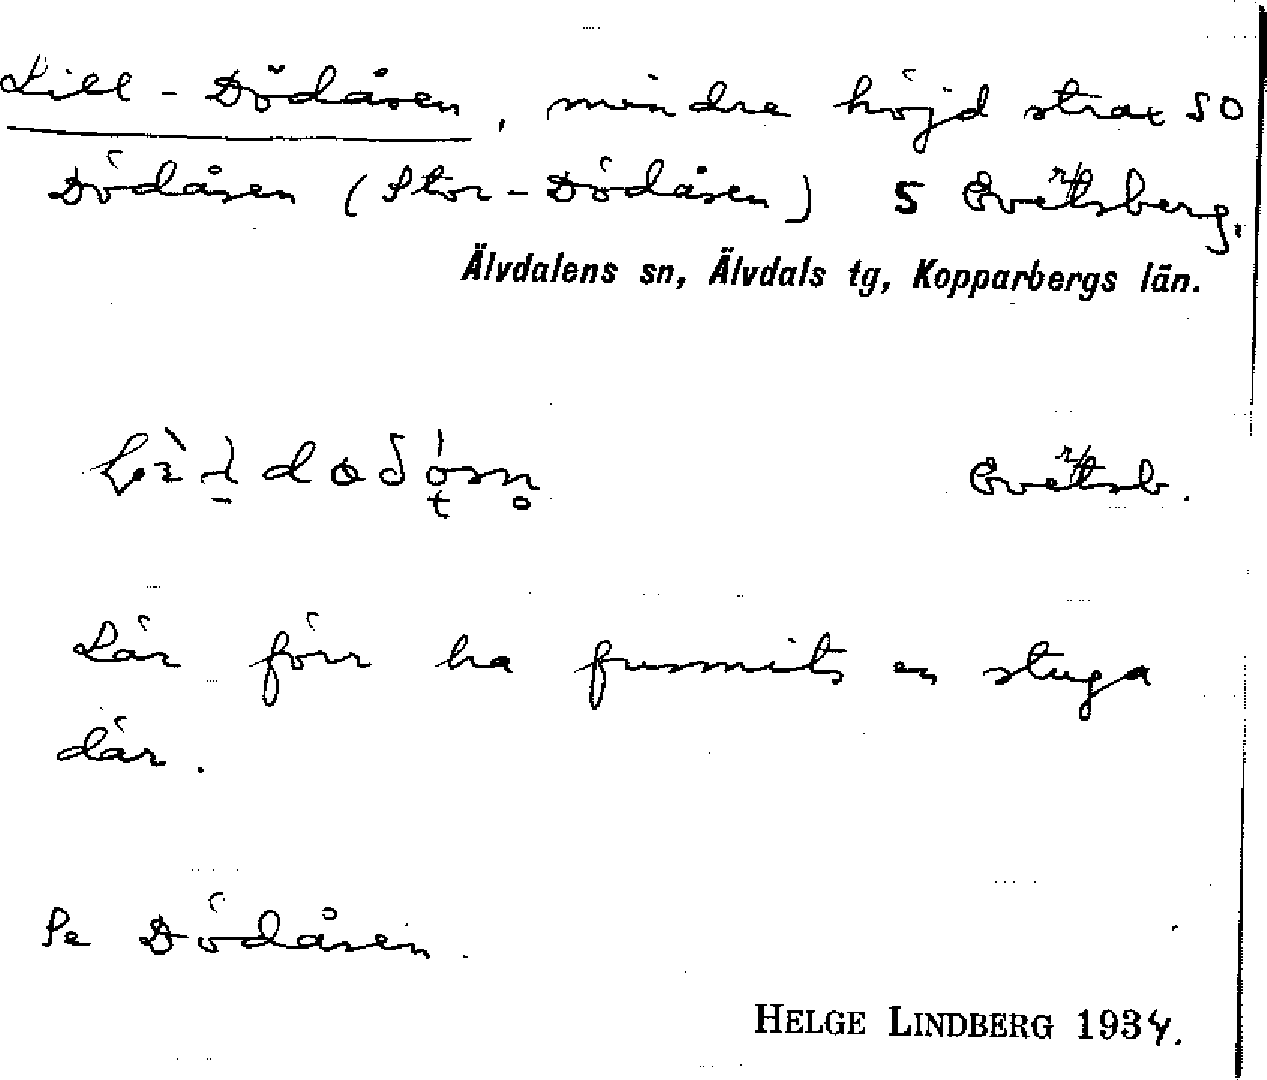 Lill-Dödåsen, mindre höjd strax SO
Dödåsen (Stor-Dödåsen) S Evertsberg.
Älvdalens sn, Älvdals tg, Kopparbergs län.
Evertsb.
Lär förr ha funnits en stuga
där.
Se Dödåsen.
HELGE LINDBERG 1934.